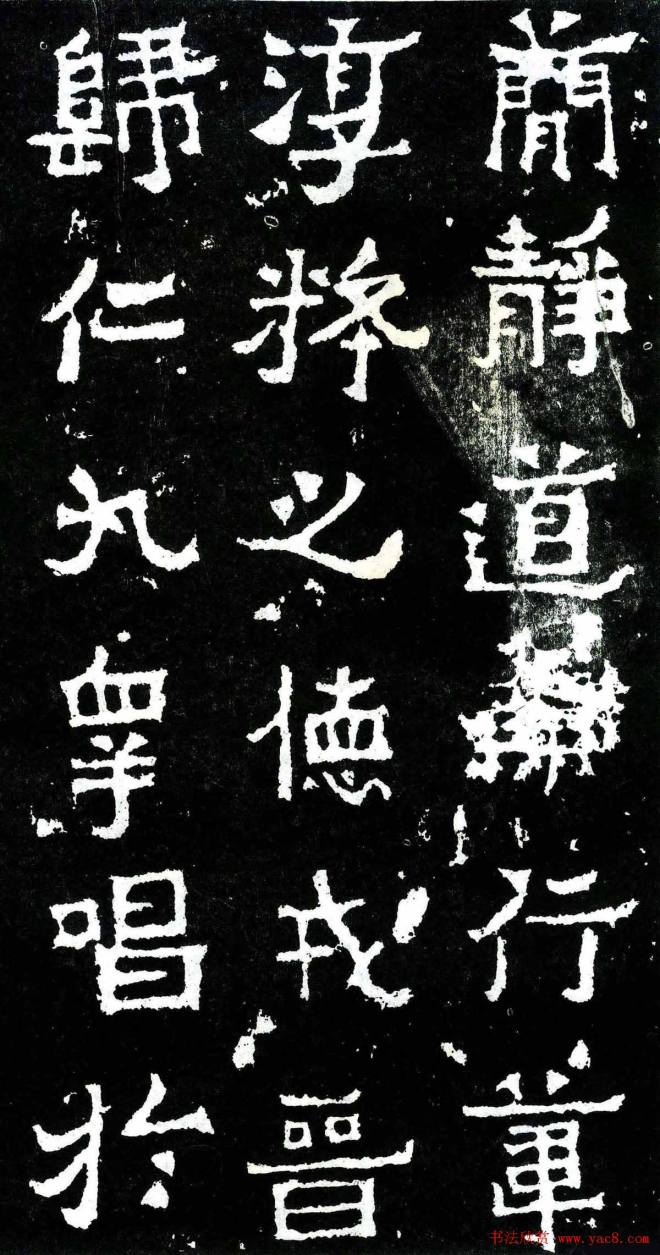 簡靜道兼行葦
淳粹之德戎晉
歸仁九皋唱於
书法欣赏 www.yac8.com